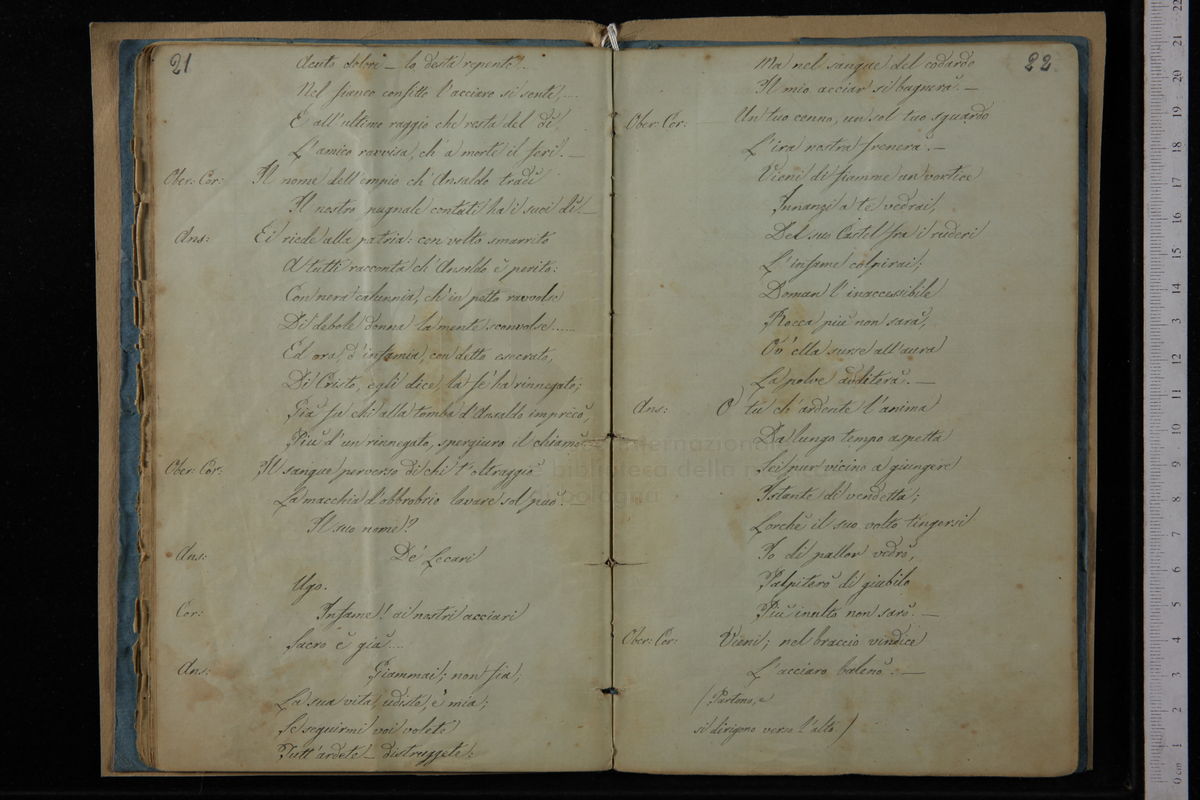 21
Acuto dolor _ lo desti repente..
Nel fianco confitto l'acciaro si sente,...
E all'ultimo raggio che resta del dì,
L'amico ravvisa, ch'a morte il ferì. _
Ober: Cor: Il nome dell'empio ch'Ansaldo tradì
Il nostro pugnale contati ha i suoi dì. _
Ans: Ei riede alla patria: con volto smarrito
A tutti racconta ch'Ansaldo è perito:
Con nera calunnia, ch'in petto ravvolse
Di debole donna la mente sconvolse.....
Ed ora, o infamia, con detto esecrato,
Di Cristo, egli dice, la fè ha rinnegato;
Già fa chi alla tomba d'Ansaldo imprecò,
Più d'un rinnegato, spergiuro il chiamò.
Ober: Cor: Il sangue perverso di chi t'oltraggiò
La macchia d'obbrobrio lavare sol può. _
Il suo nome?
Ans: De' Lecari
Ugo.
Cor: Infame! ai nostri acciari
Sacro è già...
Ans: Giammai; non fia;
La sua vita, udiste, è mia;
Se seguirmi voi volete
Tutt'ardete _ distruggete:
22
Ma nel sangue del codardo
Il mio acciar si bagnerà. _
Ober: Cor: Un tuo cenno, un sol tuo sguardo
L'ira nostra frenerà. _
Vieni di fiamme un vortice
Innanzi a te vedrai,
Del suo Castel fra i ruderi
L'infame colpirai;
Doman l'inaccessibile
Rocca più non sarà,
Ov'ella surse all'aura
La polve additerà. _
Ans: O tu ch'ardente l'anima
Da lungo tempo aspetta
Sei pur vicino a giungere
Istante di vendetta;
Lorchè il suo volto tingersi
Io di pallor vedrò,
Palpiterò di giubilo
Più inulto non sarò. _
Ober: Cor: Vieni; nel braccio vindice
L'acciaro balenò. _
(Partono, e
si dirigono verso l'alto)